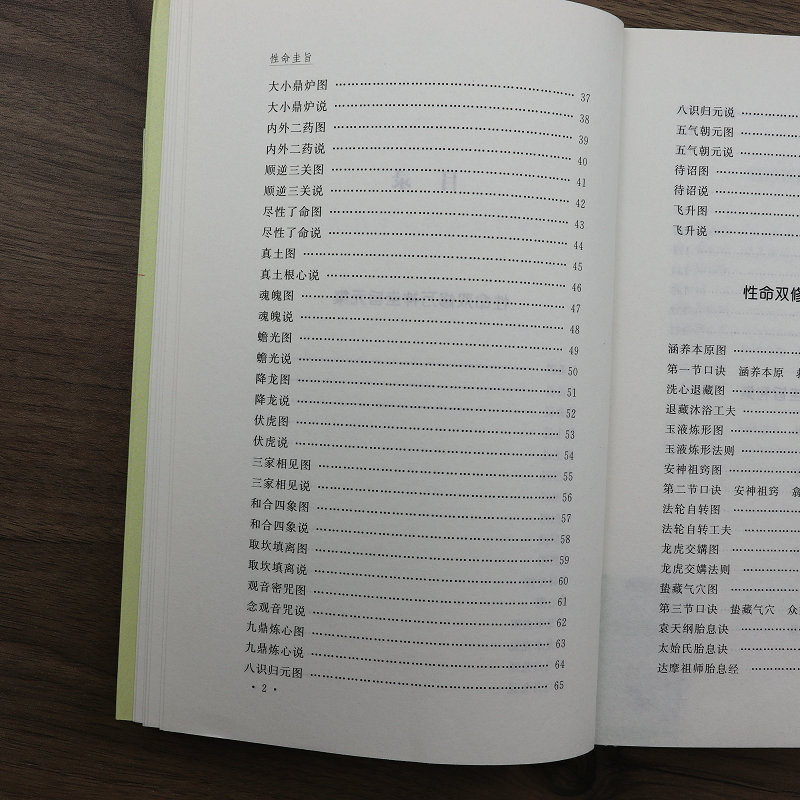 性命圭旨
大小鼎炉图 37
大小鼎炉说 38
内外二药图 39
内外二药说 40
顺逆三关图 41
顺逆三关说 42
尽性了命图 43
尽性了命说 44
真土图 45
真土根心说 46
魂魄图 47
魂魄说 48
蟾光图 49
蟾光说 50
降龙图 51
降龙说 52
伏虎图 53
伏虎说 54
三家相见图 55
三家相见说 56
和合四象图 57
和合四象说 58
取坎填离图 59
取坎填离说 60
观音密咒图 61
念观音咒说 62
九鼎炼心图 63
九鼎炼心说 64
八识归元图 65
· 2 ·
八识归元说
五气朝元图
五气朝元说
待诏图
待诏说
飞升图
飞升说
性命双修
涵养本原图
第一节口诀 涵养本原
洗心退藏图
退藏沐浴工夫
玉液炼形图
玉液炼形法则
安神祖窍图
第二节口诀 安神祖窍 翕
法轮自转图
法轮自转工夫
龙虎交媾图
龙虎交媾法则
蛰藏气穴图
第三节口诀 蛰藏气穴 众
袁天纲胎息诀
太始氏胎息诀
达摩祖师胎息经